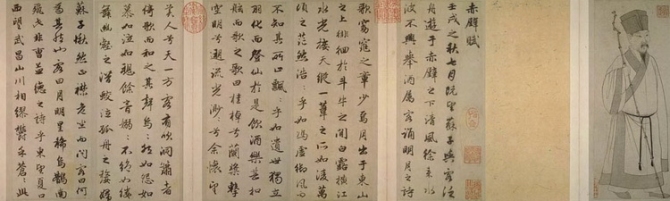 赤壁賦
壬戌之秋七月既望蘇子與客泛
舟遊于赤壁之下清風徐来水
波不興舉酒屬客誦明月之詩
歌窈窕之章少焉月出于東山
之上徘徊於斗牛之間白露横江
水光接天縱一葦之所如凌萬
頃之茫然浩〻乎如馮虚御風而
不知其所止飄〻乎如遺世獨立
羽化而登仙於是飲酒樂甚扣
舷而歌之歌曰桂棹兮蘭槳擊
空明兮遡流光渺〻兮余懷望
美人兮天一方客有吹洞簫者
倚歌而和之其聲嗚〻然如怨如
慕如泣如訴餘音嫋〻不絶如縷
舞幽壑之潛蛟泣孤舟之嫠婦
蘇子愀然正襟危坐而問客曰何
為其然也客曰月明星稀烏鵲南
飛此非曹孟德之詩乎東望夏口
西望武昌山川相繆鬱乎蒼〻此